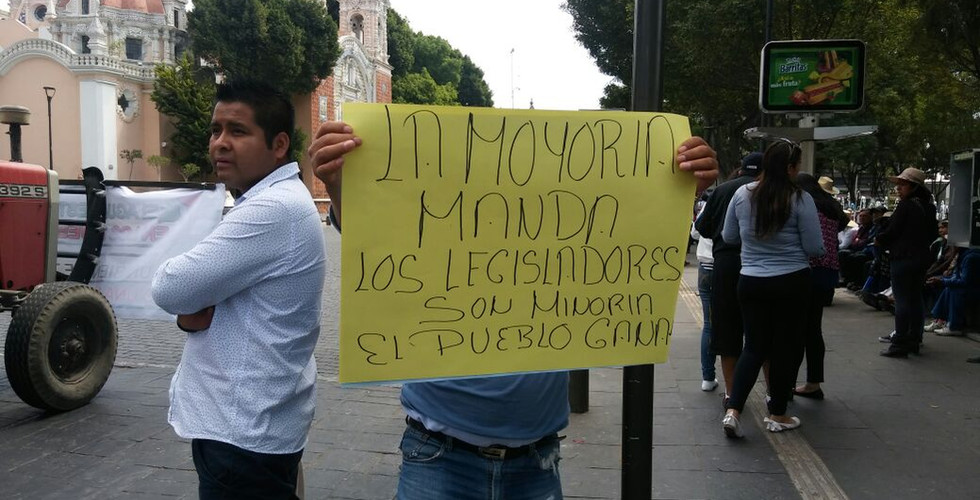 LA MOYORIA
MANDA
LOS LEGISLADORES
SON MINORIA
EL PUEBLO GANA
392 S
Barritas